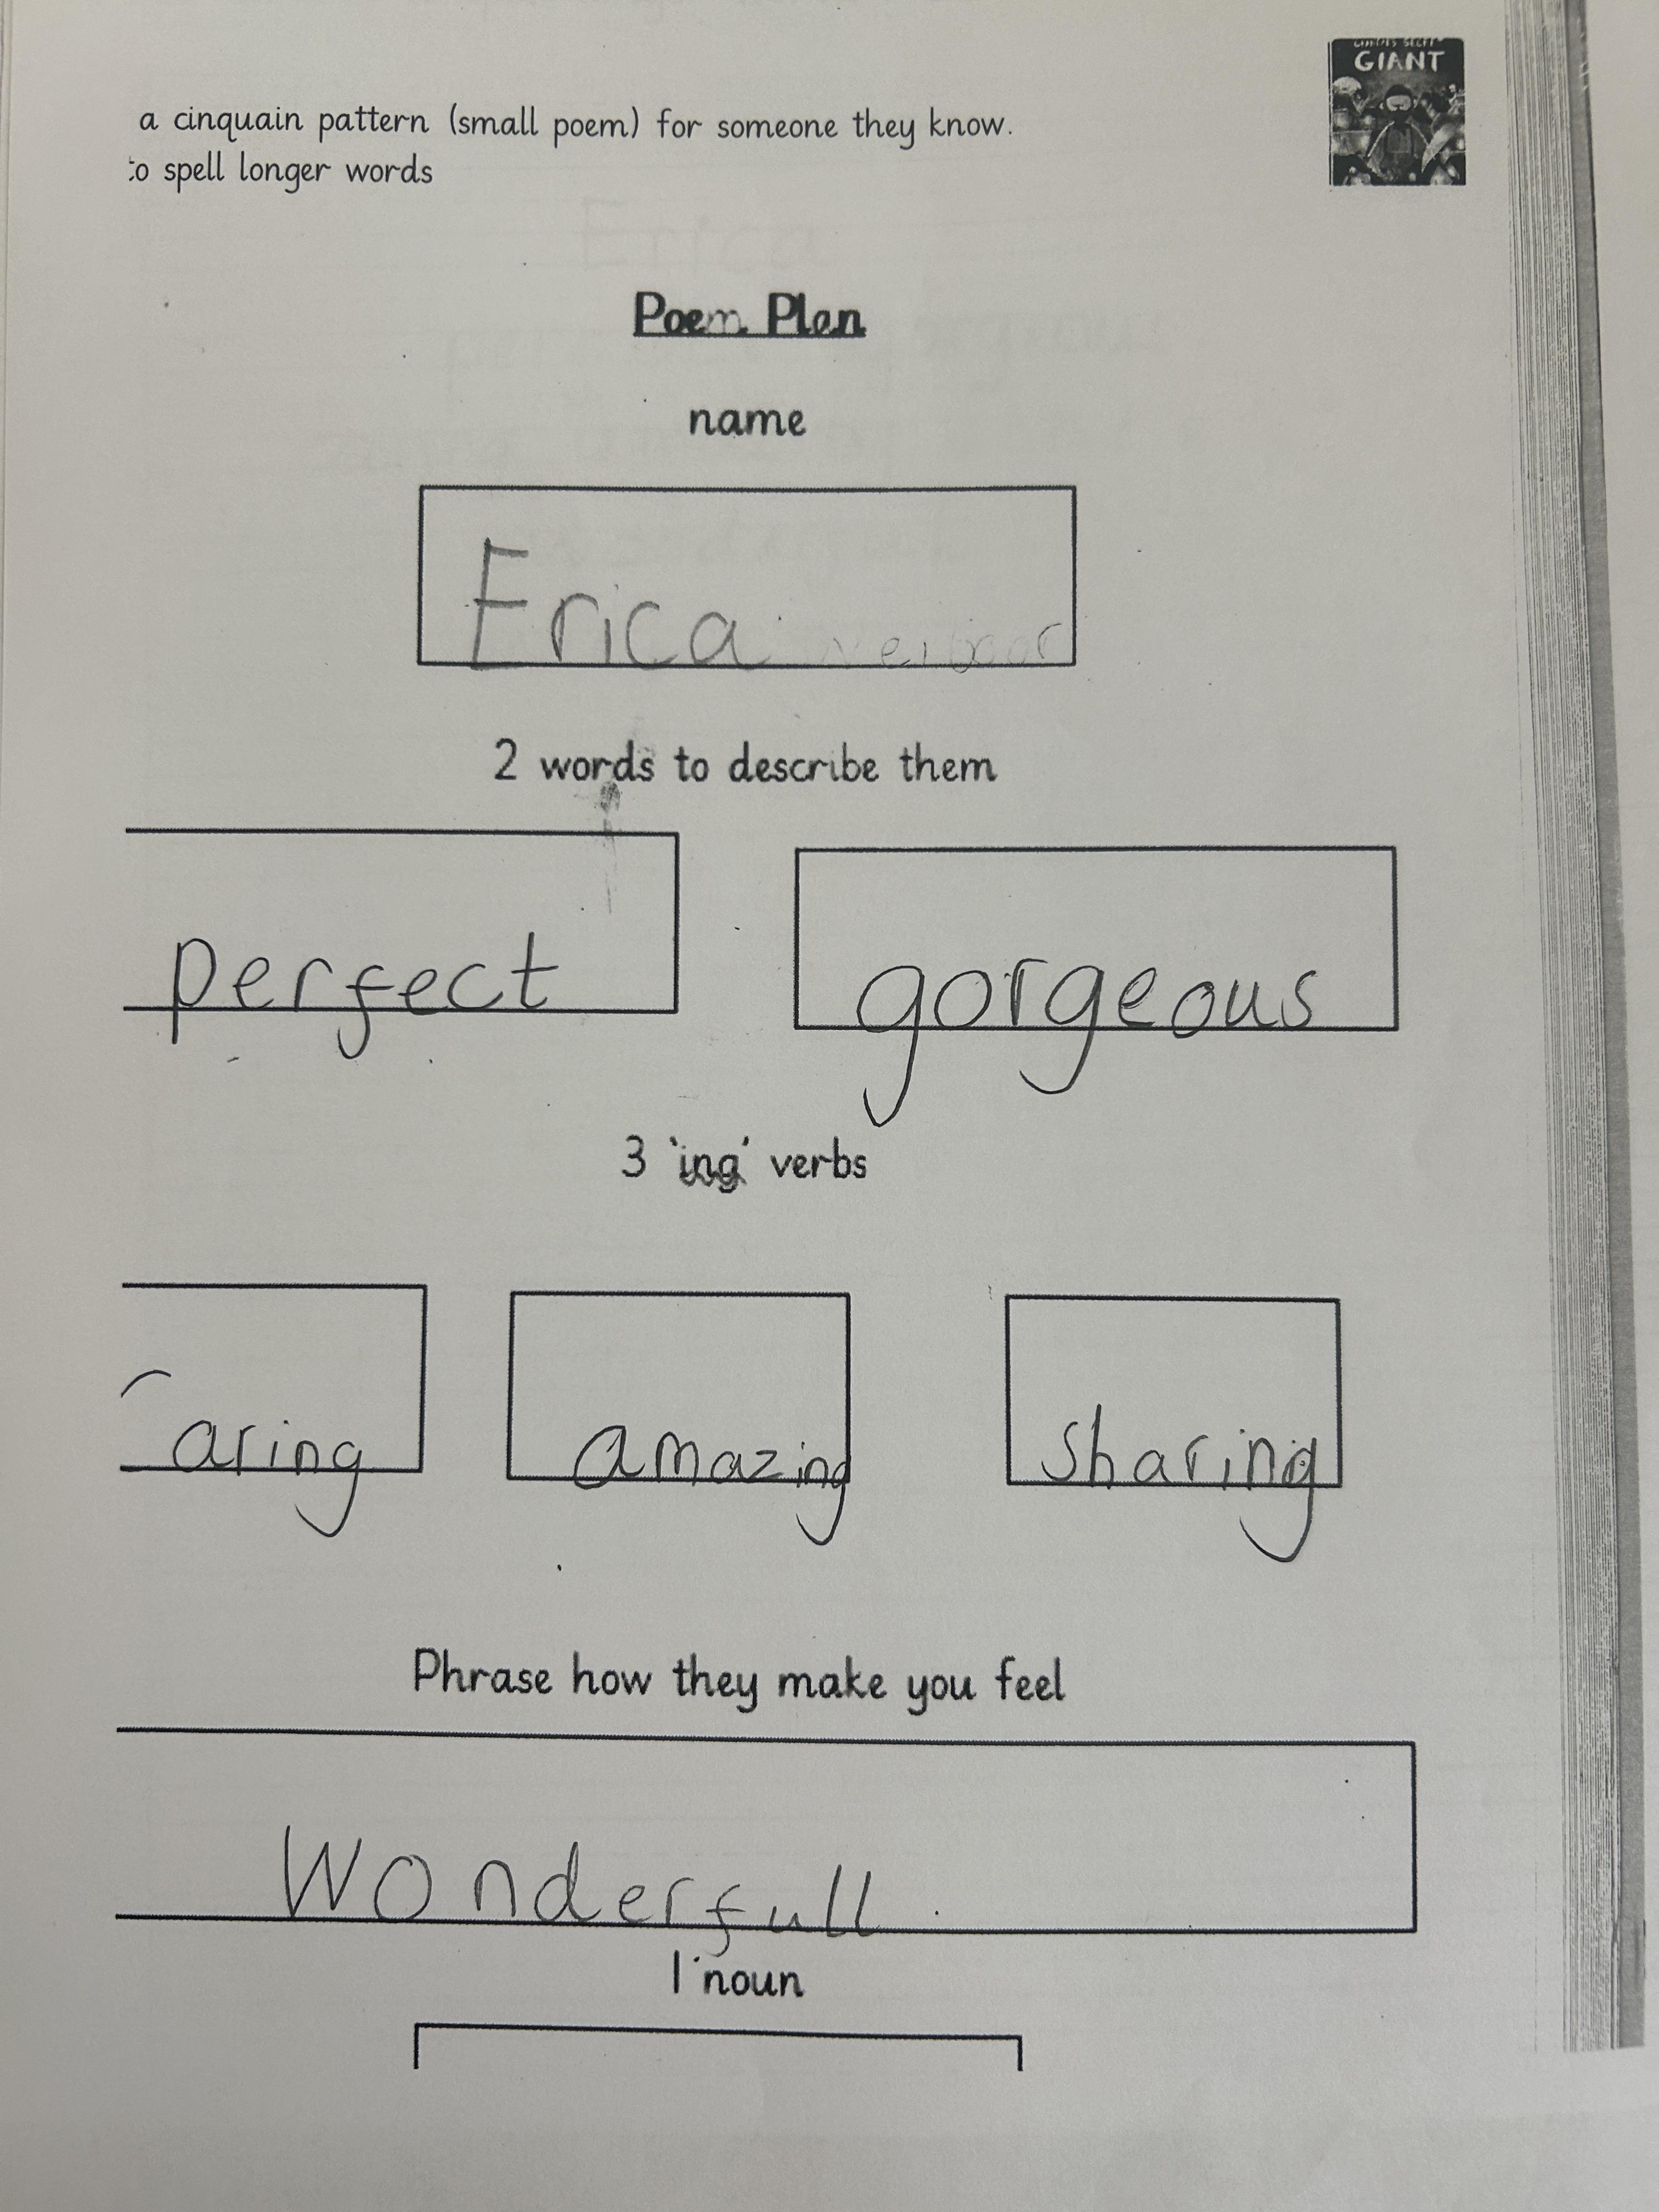 GIANT
a cinquain pattern (small poem) for someone they know.
to spell longer words
Poem Plan
name
Erica
2 words to describe them
perfect gorgeous
3 'ing' verbs
Caring amazing sharing
Phrase how they make you feel
Wonderfull
1 noun